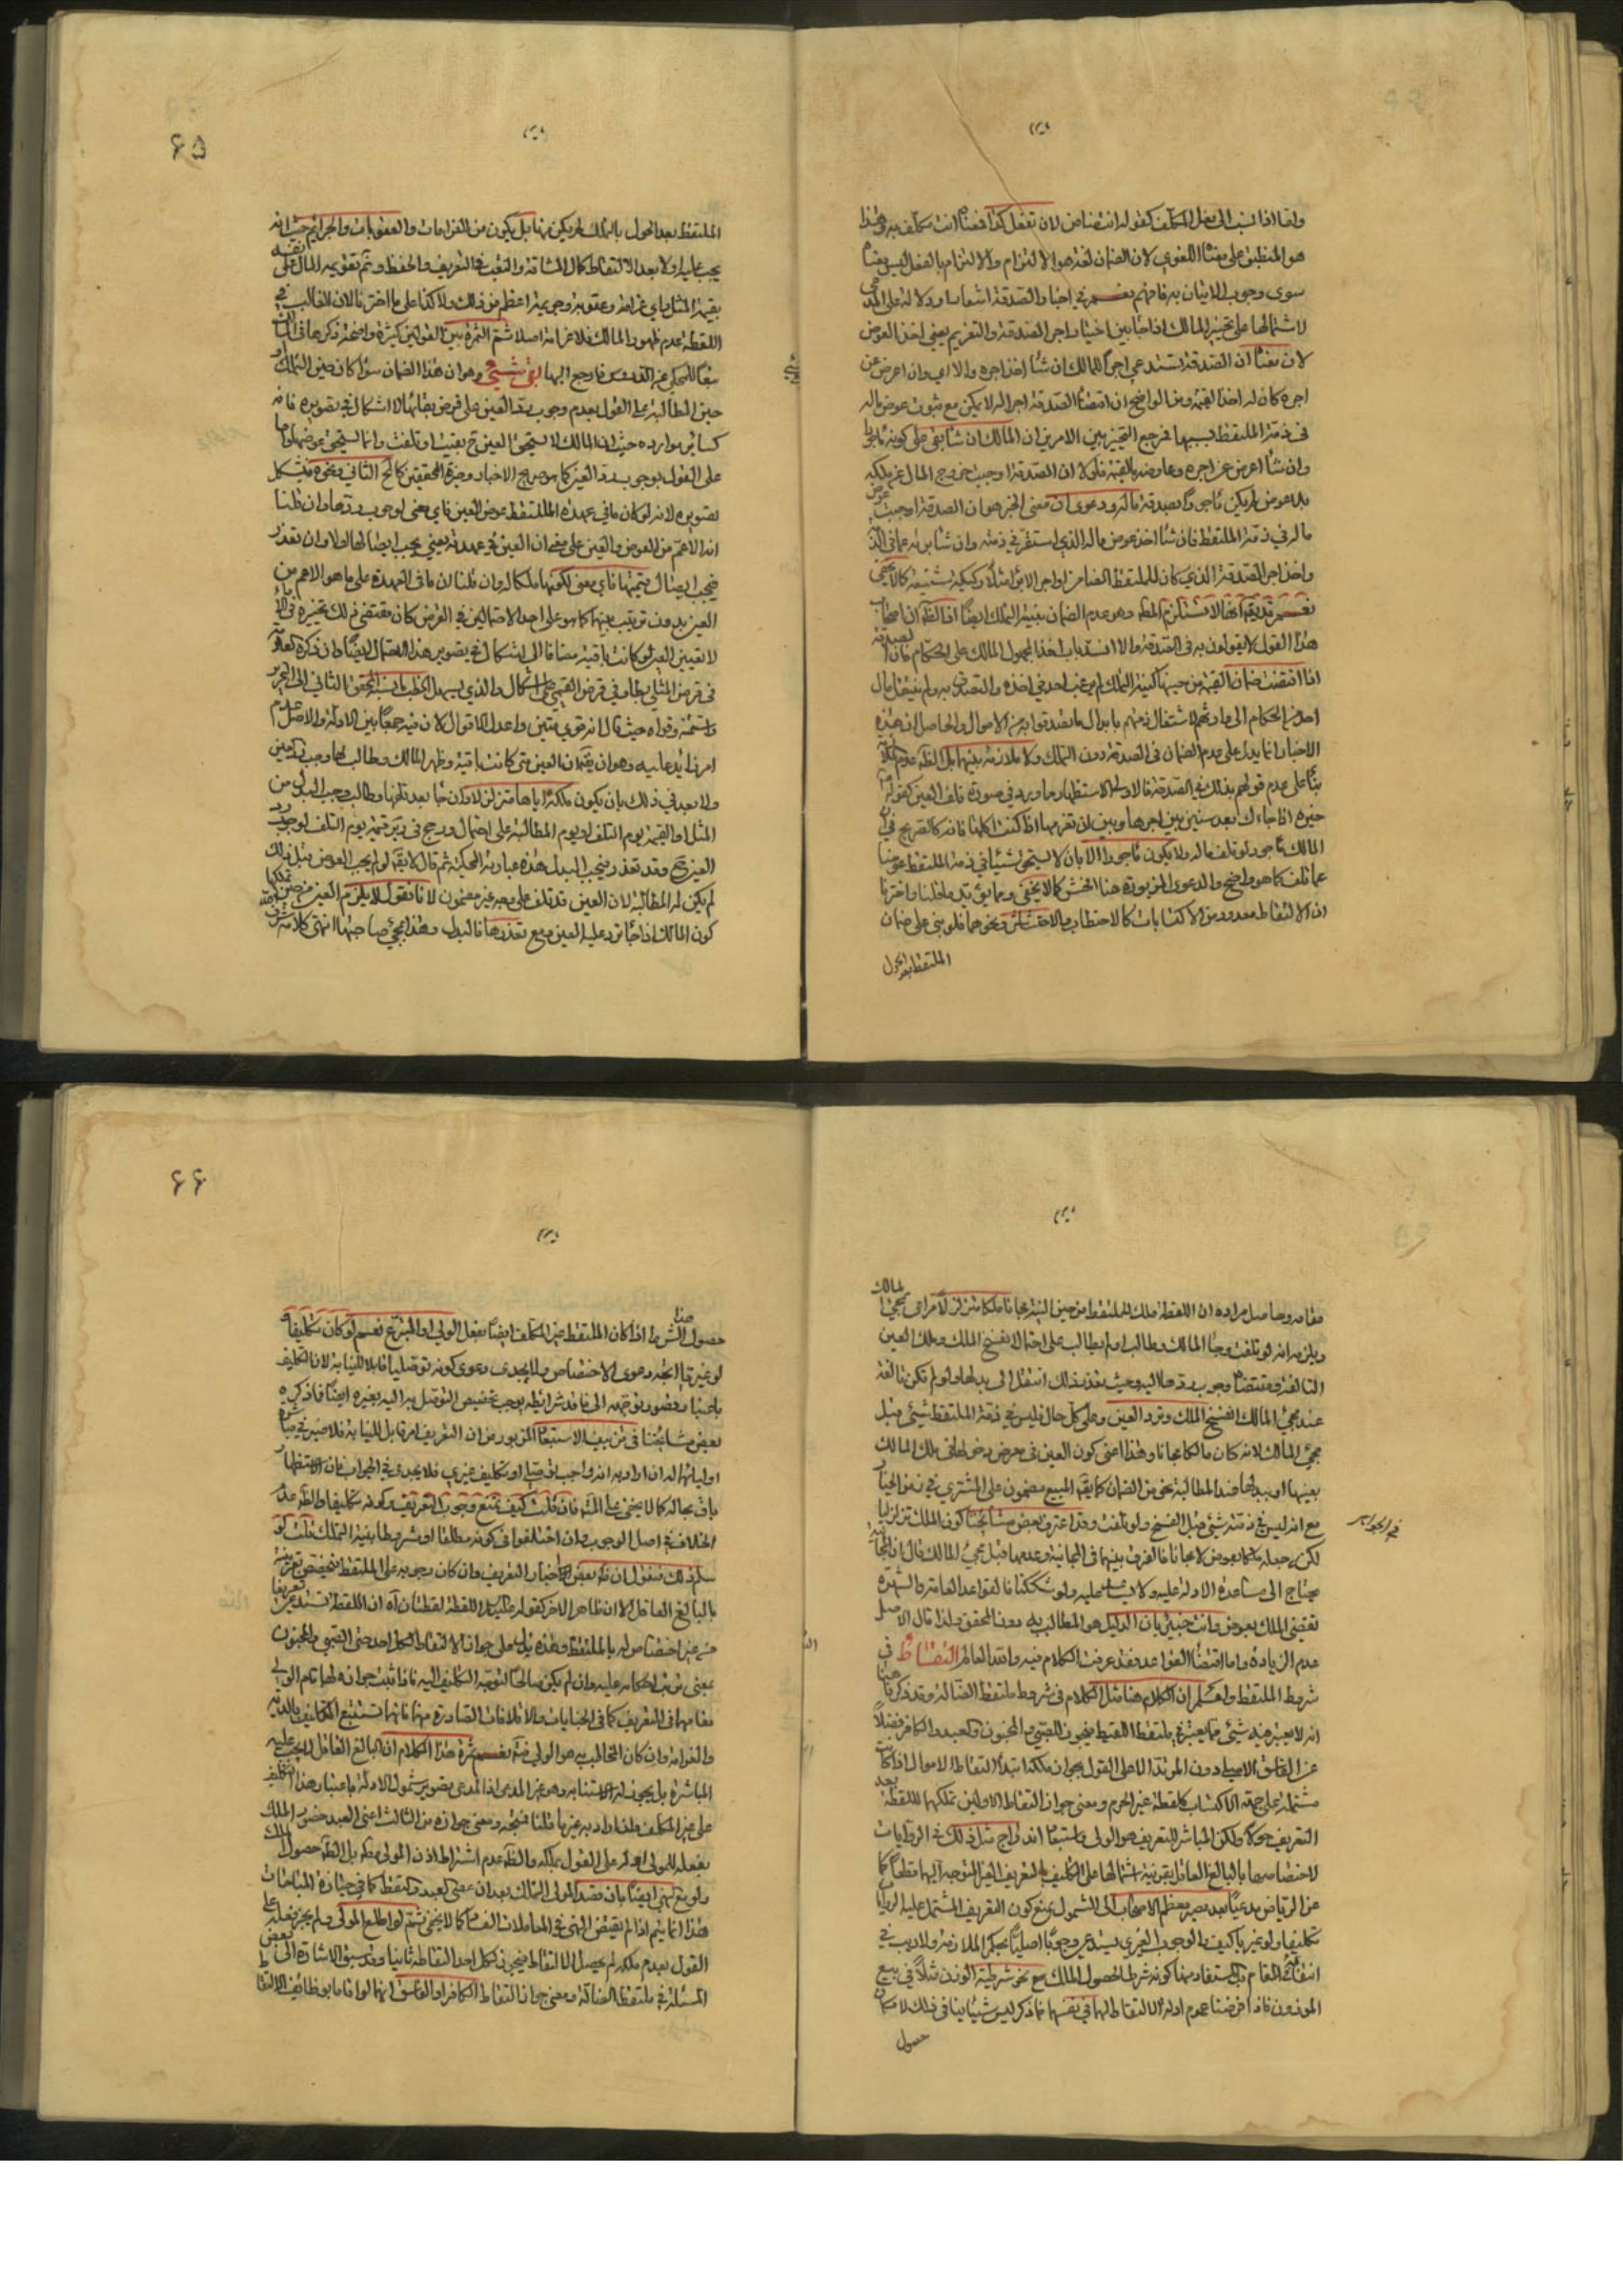 واما اذا نسب الى فعل المكلف كقوله انت ضامن لان تفعل كذا فمعناه انت مكلف به وهذا
هو المنطبق على معناه اللغوي لان الضمان لغة هو الالتزام والالتزام بالفعل ليس معناه
سوى وجوب الاتيان به فافهم نعم في اخبار الصدقة اشعار او دلالة على المدعى
لاشتمالها على تخيير المالك اذا جاء بين اختيار اجر الصدقة والتغريم يعني اخذ العوض
لان معناه ان الصدقة تستدعي اجرا للمالك ان شاء اخذ اجره والا اي وان اعرض عن
اجره كان له اخذ القيمة ومن الواضح ان اقتضاء الصدقة اجرا له لا يمكن مع ثبوت عوض ماله
في ذمة الملتقط بسببها فمرجع التخيير بين الامرين ان المالك ان شاء بقي على كونه مأجورا
وان شاء اعرض عن اجره وعاوضه بالقيمة فلولا ان الصدقة اوجبت خروج المال عن ملكه
بلا عوض لم يكن مأجورا بصدقة ماله ودعوى ان معنى الخبر هو ان الصدقة اوجبت عوض
ماله في ذمة الملتقط فان شاء اخذ عوض ماله الذي استقر في ذمته وان شاء ابرئه عما في الذمة
واخذ اجر الصدقة الذي كان للملتقط الضامن او اجر الابراء مثلا ركيكة بشيعة كما لا يخفى
نعم
هذا القول لا يقولون به في الصدقة والا انسد باب اخذ المجهول المالك على الحكام فان
اذا اقتضت ضمان القيمة من حينها كنية التملك لم يرغب احد في اخذه والتصدق به ولم ينتقل مال
احد من الحكام الى وارثهم لاشتغال ذمتهم بابدال ما تصدقوا به من الاموال والحاصل ان هذه
الاخبار انما يدل على عدم الضمان في الصدقة دون التملك ولا ملازمة بينهما بل الظاهر عدم
بناء على عدم قولهم بذلك في الصدقة فالاولى الاستظهار مما ورد في صورة تلف العين كقوله
خيره اذا جاءك بعد سنين بين اجرها وبين ان تغرمها اذا كنت اكلتها فانه كالصريح في ان
المالك مأجور لو تلف ماله ولا يكون مأجورا الا بان لا يستحق شيئا في ذمة الملتقط عوضا
عما تلف كما هو واضح والدعوى المزبورة هنا افحش كما لا يخفى ومما يؤيد ما قلنا واخترنا
ان الالتقاط معدود من الاكتسابات كالاحتطاب والاحتشاش ونحوهما فلو بنى على ضمان
الملتقط بعد الحول
٦٥
الملتقط بعد الحول بالتملك لم يكن منها بل يكون من الغرامات والعقوبات والجرايم حيث انه
يجب عليه اولا بعد الالتقاط كمال المشاقة والتعب في التعريف والحفظ وثم تقويم المال على نفسه
بقيمة المثل واي غرامة وعقوبة وجريمة اعظم من ذلك ولا كذا على ما اخترنا لان الغالب في
اللقطة عدم ظهور المالك فلا غرامة اصلا ثم الثمرة بين القولين كثيرة واضحة ذكرها في
تبعا للمحكي عن القدس فارجع اليها بقي شيئ وهو ان هذا الضمان سواء كان حين التملك او
حين المطالبة على القول بعدم وجوب رد العين على فرض بقائها لا اشكال في تصويره فانه
كسائر موارده حيث ان المالك لا يستحق العين ح بقيت او تلفت وانما يستحق عوضها واما
على القول بوجوب رد العين كما هو صريح الاخبار وخيرة المحققين كالمحقق الثاني ونحوه فيشكل
تصويره لانه لو كان ما في عهدة الملتقط عوض العين فاي معنى لوجوب ردها وان قلنا
انه الاعم من العوض والعين على معنى ان العين في عهدته يعني يجب ايصالها اولا وان تعذر
فيجب ايصال قيمتها فاي معنى لكونها ملكا له وان قلنا ان ما في العهدة على ما هو الاعم من
العين بدون ترتيب بينهما كما هو على احد الاحتمالين في القرض كان مقتضى ذلك تخييره في الاداء
لا تعيين العين لو كانت باقية مضافا الى اشكال في تصوير هذا الاحتمال ايضا وان ذكره
في قرض المثلي بل وفي قرض القيمي على اشكال والذي يسهل الخطب ما نسبه المحقق الثاني الى التحرير
واستمتنه وقواه حيث قال انه قوي متين واعدل الاقوال لان فيه جمعا بين الادلة والاصل عدم
امر زايد عليه وهو ان يقال ان العين متى كانت باقية وظهر المالك وطالب بها وجب رد العين
ولا بعد في ذلك بان يكون ملكه اياها متزلزلا وان جاء بعد تلفها وطالب وجب البدل من
المثل او القيمة يوم التلف او يوم المطالبة على احتمال ورجح في قيمة يوم التلف لوجوب رد
العين ح وقد تعذر فيجب البدل هذه عبارته المحكية ثم قال لا يقال لو لم يجب العوض قبل ذلك
لم يكن له المطالبة لان العين قد تلف على وجه غير مضمون لانا نقول لا يلزم العين من حين تملكها
كون المالك اذا جاء ترد عليه العين ومع تعذرها فالبدل وهذا بمجيئ صاحبها انتهى كلامه
مقامه وحاصل مراده ان اللقطة ملك للملتقط من حين النية مجانا ملكا متزلزلا مراعى بمجيئ المالك
ويلزمه انه لو تلفت وجاء المالك وطالب او لم يطالب على احتمال ينفسخ الملك وملك العين
التالفة ومقتضاه وجوب ردها اليه وحيث تعذر ذلك انتقل الى بدلها ولو لم تكن تالفة
عند مجيئ المالك انفسخ الملك وترد العين وعلى كل حال فليس في ذمة الملتقط شيئ قبل
مجيئ المالك لانه كان مالكا مجانا وهذا اعني كون العين في معرض دخولها في ملك المالك
بعينها او ببدلها عند المطالبة نحو من الضمان كما يقال المبيع مضمون على المشتري في زمن الخيار
مع انه ليس في ذمته شيئ قبل الفسخ ولو تلفت وقد اعترف بعض مشايخنا كون الملك تزلزليا
في الجواهر
لكن جعله ملكا بعوض لا مجانا فالفرق بينهما في المجانية وعدمها قبل مجيئ المالك قال ان المجانية
يحتاج الى مساعدة الادلة عليه ولا يساعد عليه ولو شككنا فالقواعد العامة والشهرة
تقتضي الملك بعوض وانت خبير بان الدليل هو المطالب به دون المحقق ولذا قال الاصل
عدم الزيادة واما اقتضاء القواعد فقد عرفت الكلام فيه والله العالم التقاط في
شروط الملتقط واعلم ان الكلام هنا مثل الكلام في شروط ملتقط الضالة وقد ذكرنا هناك
انه لا يعتبر فيه شيئ مما يعتبر في ملتقط اللقيط فيجوز للصبي والمجنون والعبد والكافر فضلا
عن الفاسق الاصلي دون المرتد الا على القول بجواز ملكه ابتداء التقاط الاموال اذا كانت
مشتملة على جهة الاكتساب كلقطة غير الحرم ومعنى جواز التقاط الاولين تملكهما اللقطة بعد
التعريف حولا ولكن المباشر للتعريف هو الولي واستبعاد اندراج مثل ذلك في الروايات
لاختصاصها بالبالغ العاقل بقرينة اشتمالها على التكليف بالتعريف الغير المتوجه اليهما قطعا كما
عن الرياض مدعيا بعد مصير معظم الاصحاب الى الشمول بمنع كون التعريف المشتمل عليه الروايات
تكليفا ولو غيريا كيف والوجوب الغيري يستدعي وجوبا اصليا بحكم الملازمة ولا ريب في
انتفائه في المقام بل المستفاد منها كونه شرطا لحصول الملك مع نحو شرطية الوزن مثلا في بيع
الموزون فاذا فرضنا عموم ادلة الالتقاط لهما في نفسها فما ذكر ليس شيئا ينافي ذلك لامكان
حصول
٦٦
حصول هذا الشرط اذا كان الملتقط غير المكلف ايضا بفعل الولي او المتبرع نعم لو كان تكليفا و
لو غيريا اتجه دعوى الاختصاص ولا يجدي دعوى كونه توصليا قابلا للنيابة لان التكليف
باعتبار قصور توجهه الى فاقد شرائطه يوجب تخصيص التوصل به اليه بغيره ايضا فما ذكره
بعض مشايخنا في تزييف الاستبعاد المزبور من ان التعريف امر قابل للنيابة فلا ضير في مباشرة
اوليائهما له ان اراد به انه واجب توصلي او تكليف غيري فلا يجدي في الجواب فان الاستظهار
باق بحاله كما لا يخفى على المتأمل فان قلت كيف تمنع وجوب التعريف وكونه تكليفا والظاهر عدم
الخلاف في اصل الوجوب وان اختلفوا في كونه مطلقا او مشروطا بنية التملك قلت لو
سلم ذلك فنقول ان ظاهر بعض اخبار التعريف وان كان وجوبه على الملتقط فيختص
بالبالغ العاقل الا ان ظاهر الآخر كقوله عليه السلام اللقطة لقطتان آه ان اللقطة تستدعي تعريفا
من غير اختصاصه بالملتقط وهذه يدل على جواز الالتقاط لكل احد حتى الصبي والمجنون
بمعنى ترتب احكامه عليه وان لم يكن صالحا لتوجه التكليف اليه فاذا ثبت جوازه لهما قام الولي
مقامهما في التعريف كما في الجنايات والاتلافات الصادرة منهما فانها تستتبع التكليف بالدية
والغرامة وان كان المخاطب به هو الولي فيه نعم ثمرة هذا الكلام ان البالغ العاقل لا يجب عليه
المباشرة بل يجوز له الاستنابة وهو غير المدعى اذا المدعى تصوير شمول الادلة باعتبار هذا التكليف
على غير المكلف ولذا اراد به غير ما قلنا فمتجه ومعنى جوازه من الثالث اعني العبد حصول الملك
بفعله للمولى او له على القول بملكه والظاهر عدم اشتراط اذن المولى وعلمه بل الظاهر حصول الملك
ولو مع نهي ايضا بان قصد المولى التملك بعد ان عصى العبد والتقط كما في حيازة المباحات
هذا انما يتم اذا لم يقتض النهي في المعاملات الفساد كما لا يخفى ثم لو اطلع المولى ولم يجز فعله على
القول بعدم ملكه لم يحصل الالتقاط فيجوز لكل احد التقاطه ثانيا وقد سبق الاشارة الى بعض
المسئلة في ملتقط الضالة ومعنى جواز التقاط الكافر او الفاسق انهما لو اقاما بوظائف الالتقاط